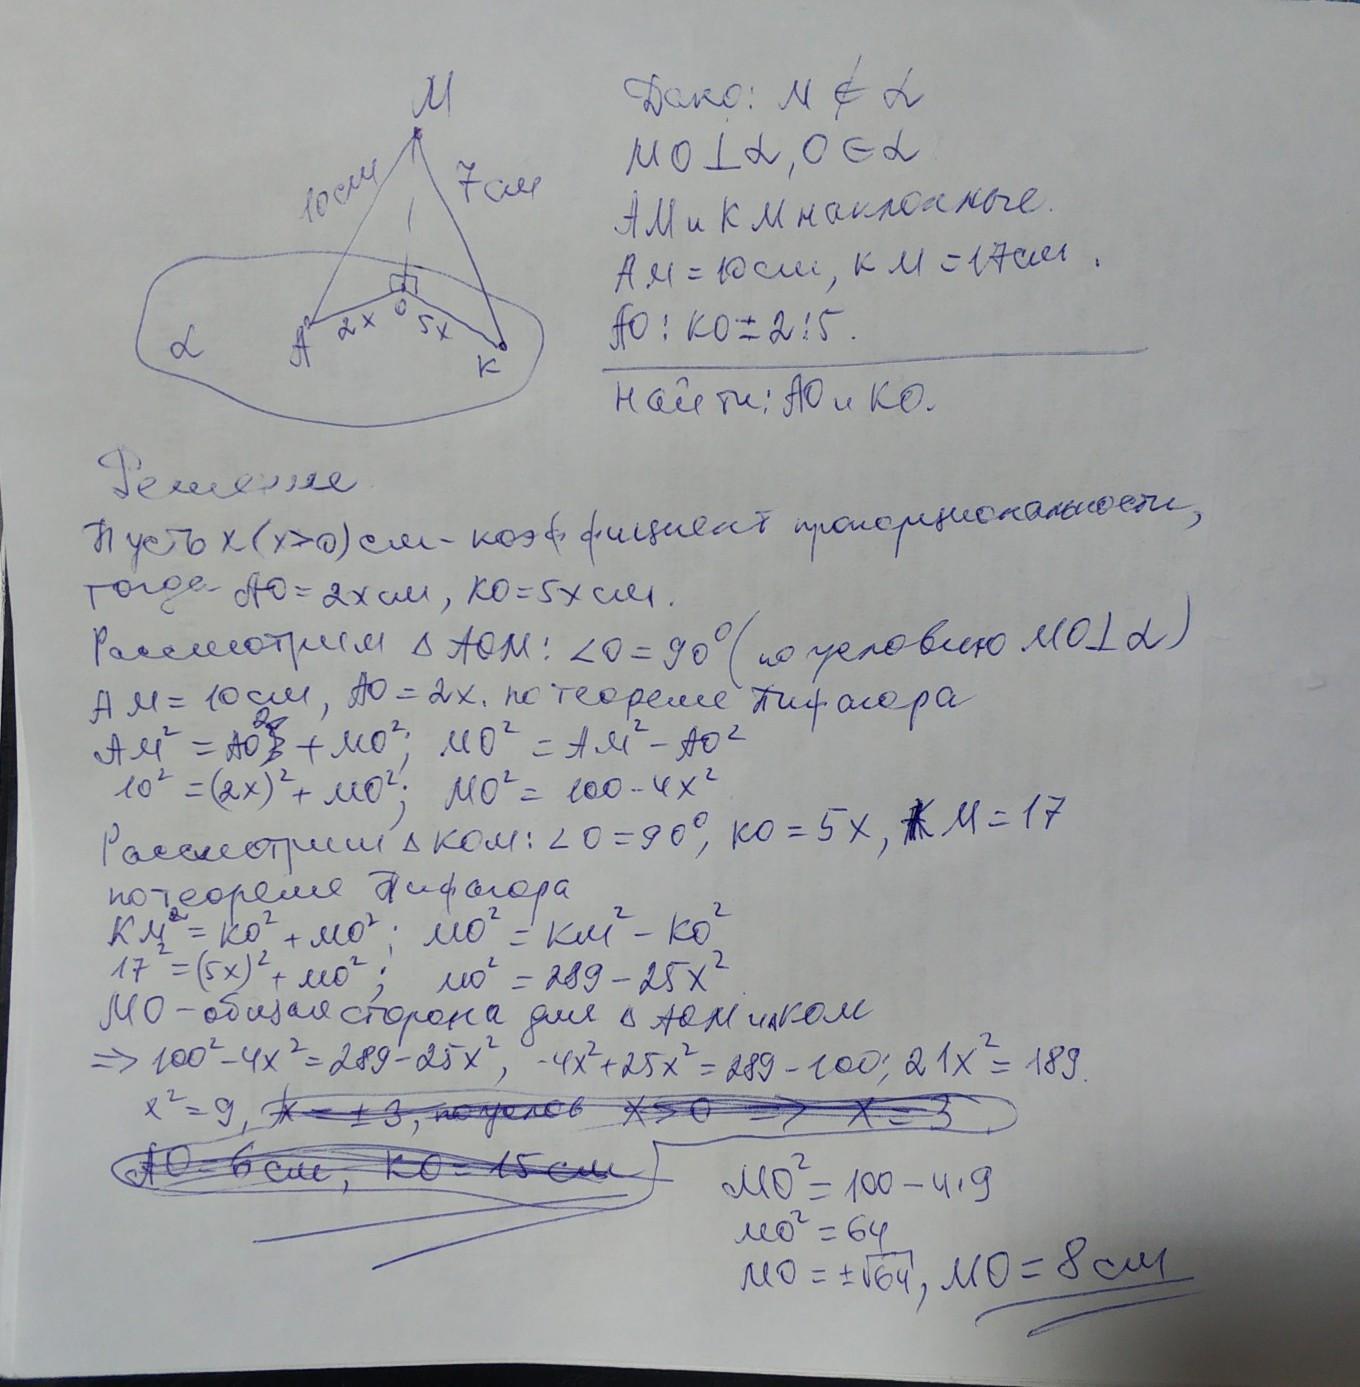 M
10см
7см
α
A
2x
O
5x
K
Дано: M ∉ α
MO ⊥ α, O ∈ α
AM и KM наклонные.
AM = 10см, KM = 17см.
AO : KO = 2:5.
Найти: AO и KO.
Решение
Пусть x (x>0) см - коэффициент пропорциональности,
тогда AO = 2x см, KO = 5x см.
Рассмотрим △ AOM: ∠O = 90° (по условию MO ⊥ α)
AM = 10см, AO = 2x. по теореме Пифагора
AM² = AO² + MO²; MO² = AM² - AO²
10² = (2x)² + MO²; MO² = 100 - 4x²
Рассмотрим △ KOM: ∠O = 90°, KO = 5x, KM = 17
по теореме Пифагора
KM² = KO² + MO²; MO² = KM² - KO²
17² = (5x)² + MO²; MO² = 289 - 25x²
MO - общая сторона для △ AOM и △ KOM
⇒ 100² - 4x² = 289 - 25x², -4x² + 25x² = 289 - 100; 21x² = 189.
x² = 9, x = ±3, по услов x>0 ⇒ x = 3
AO = 6см, KO = 15см
MO² = 100 - 4·9
MO² = 64
MO = ±√64, MO = 8см